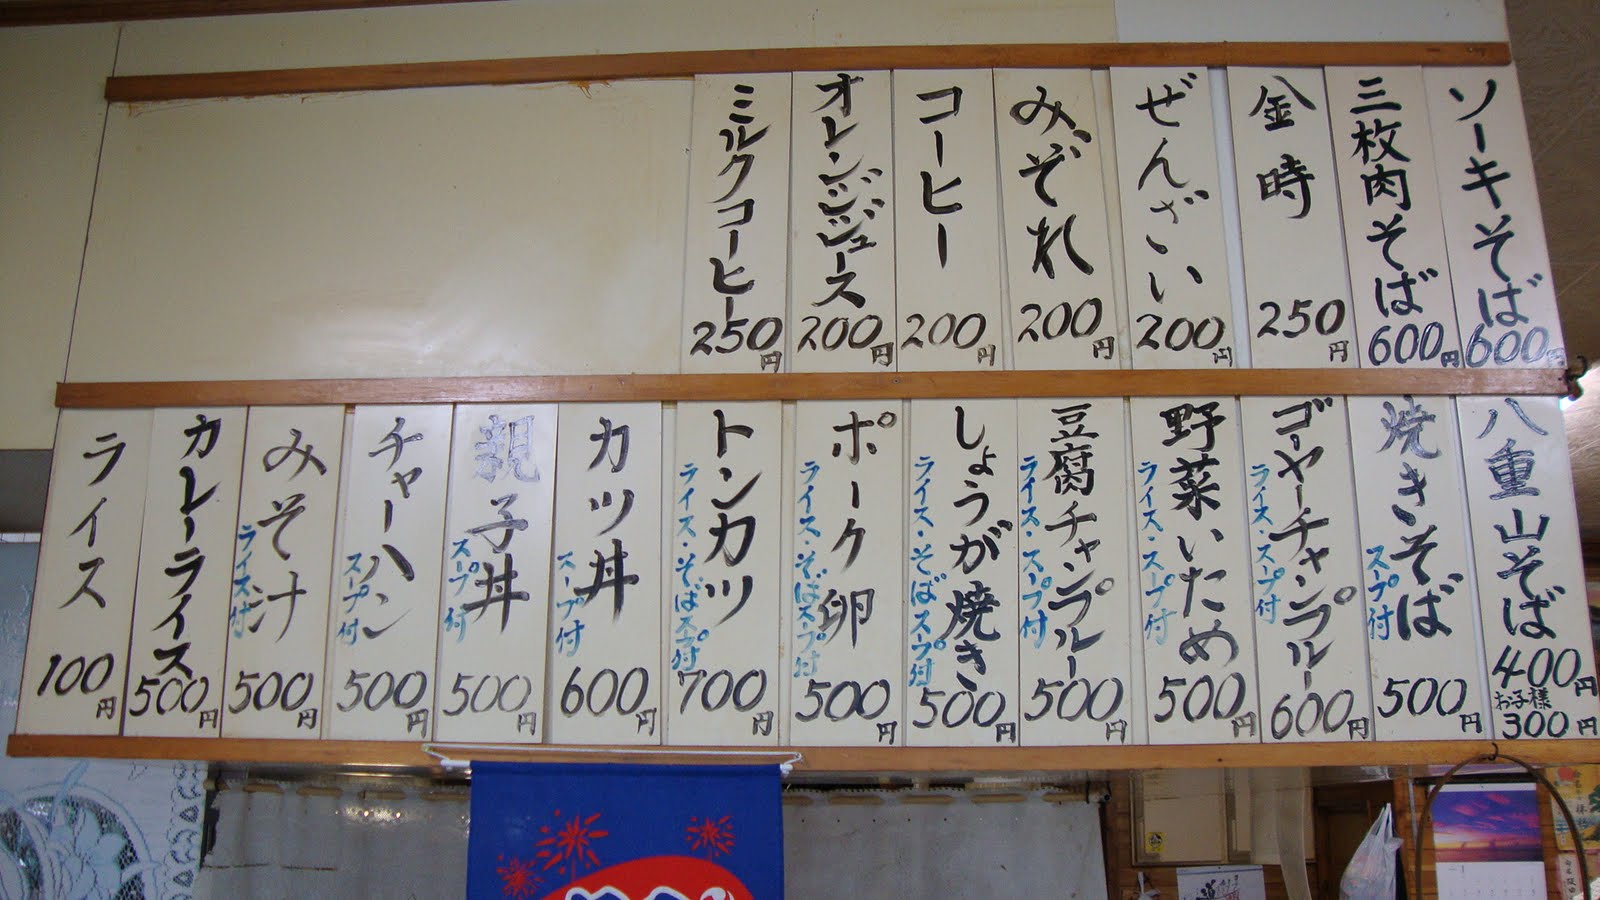 ソーキそば
600円
三枚肉そば
600円
金時
250円
ぜんざい
200円
みぞれ
200円
コーヒー
200円
オレンジジュース
200円
ミルクコーヒー
250円
八重山そば
400円
お子様
300円
焼きそば
スープ付
500円
ゴーヤーチャンプルー
ライス・スープ付
600円
野菜いため
ライス・スープ付
500円
豆腐チャンプルー
ライス・スープ付
500円
しょうが焼き
ライス・そばスープ付
500円
ポーク卵
ライス・そばスープ付
500円
トンカツ
ライス・そばスープ付
700円
カツ丼
スープ付
600円
親子丼
スープ付
500円
チャーハン
スープ付
500円
みそ汁
ライス付
500円
カレーライス
500円
ライス
100円